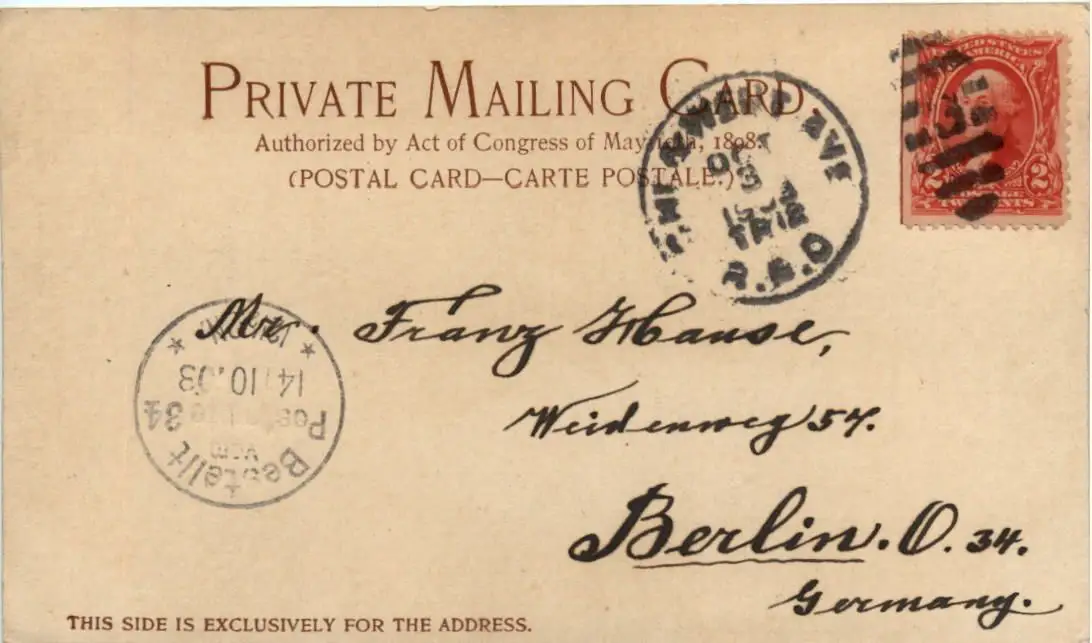 PRIVATE MAILING CARD
Authorized by Act of Congress of May 19th, 1898.
(POSTAL CARD—CARTE POSTALE.)
UNITED STATES
OF AMERICA
2 2
POSTAGE
TWO CENTS
AVE
OCT
3
R.P.O
Mr. Franz Hause,
Weidenweg 57.
Berlin. O. 34.
Germany.
Bestellt
vom
Postamte 34
14 10.03
THIS SIDE IS EXCLUSIVELY FOR THE ADDRESS.